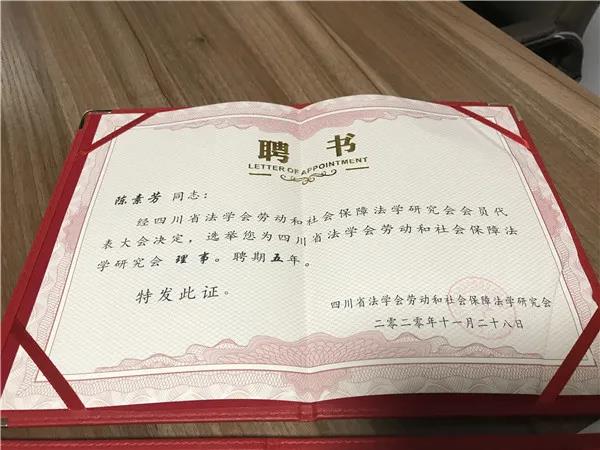 聘 书
LETTER OF APPOINTMENT
陈素芳 同志：
经四川省法学会劳动和社会保障法学研究会会员代
表大会决定，选举您为四川省法学会劳动和社会保障法
学研究会 理事。聘期五年。
特发此证。
四川省法学会劳动和社会保障法学研究会
二零二零年十一月二十八日